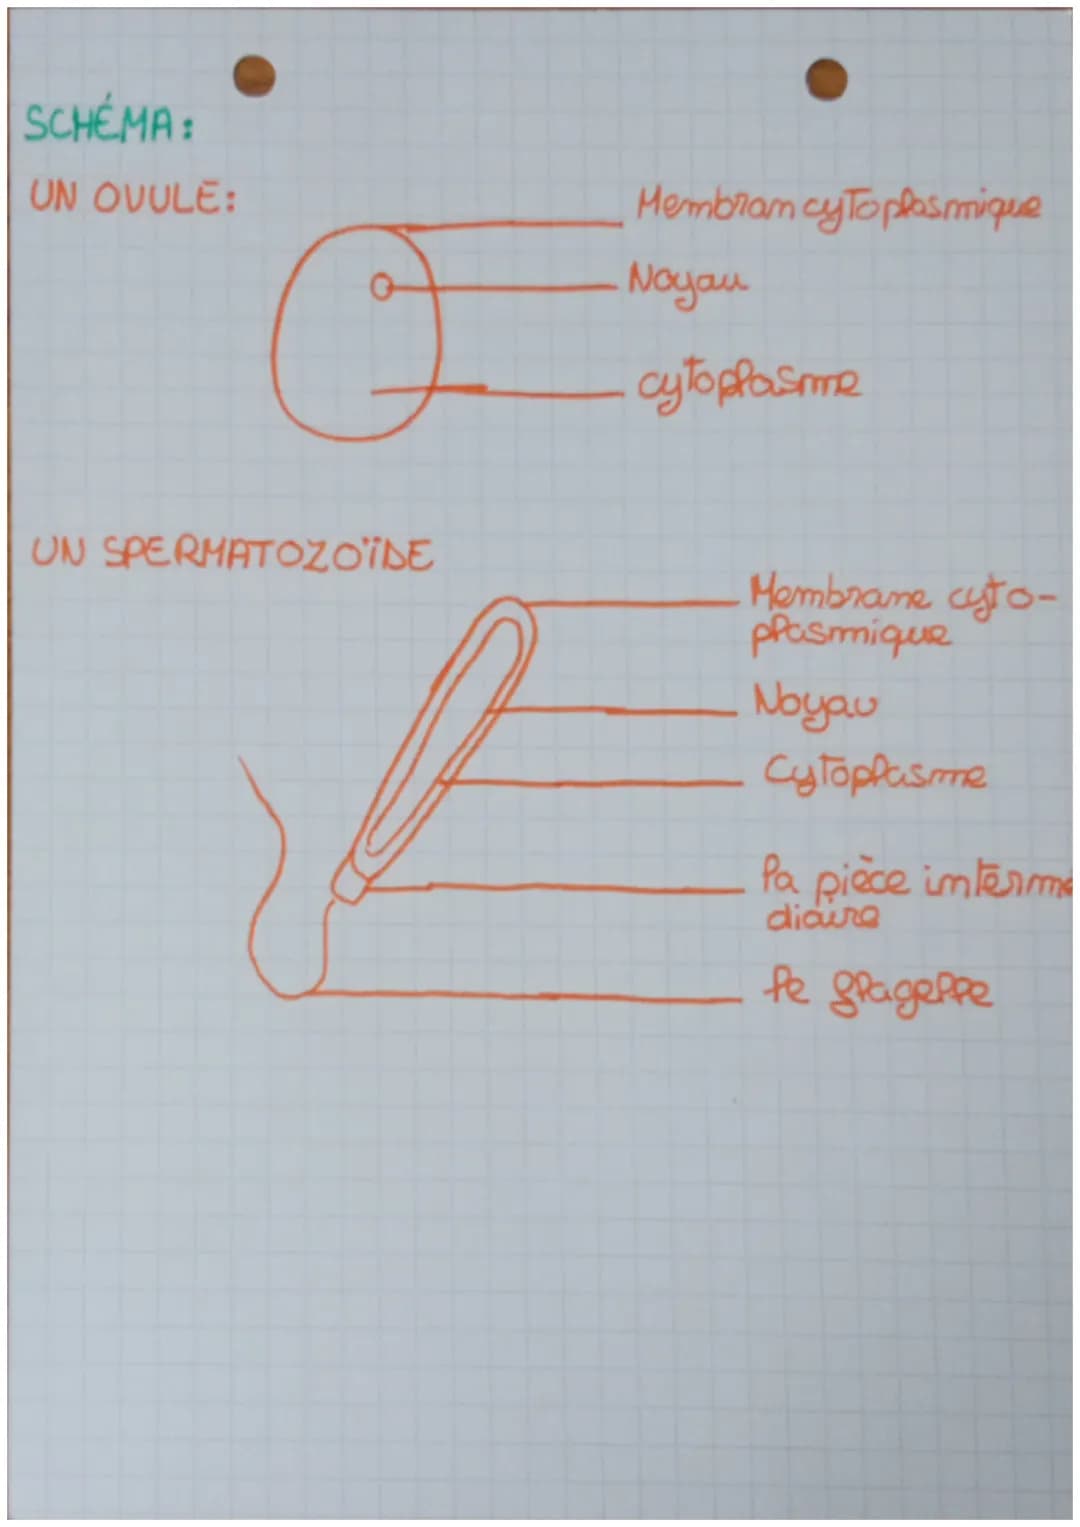 SCHÉMA:
UN OVULE:
Membran cytoplasmique
Noyau
cytoplasme
UN SPERMATOZOÏDE
Membrane cyto-
plasmique
Noyau
Cytoplasme
la pièce intermé
diaire
le flagelle